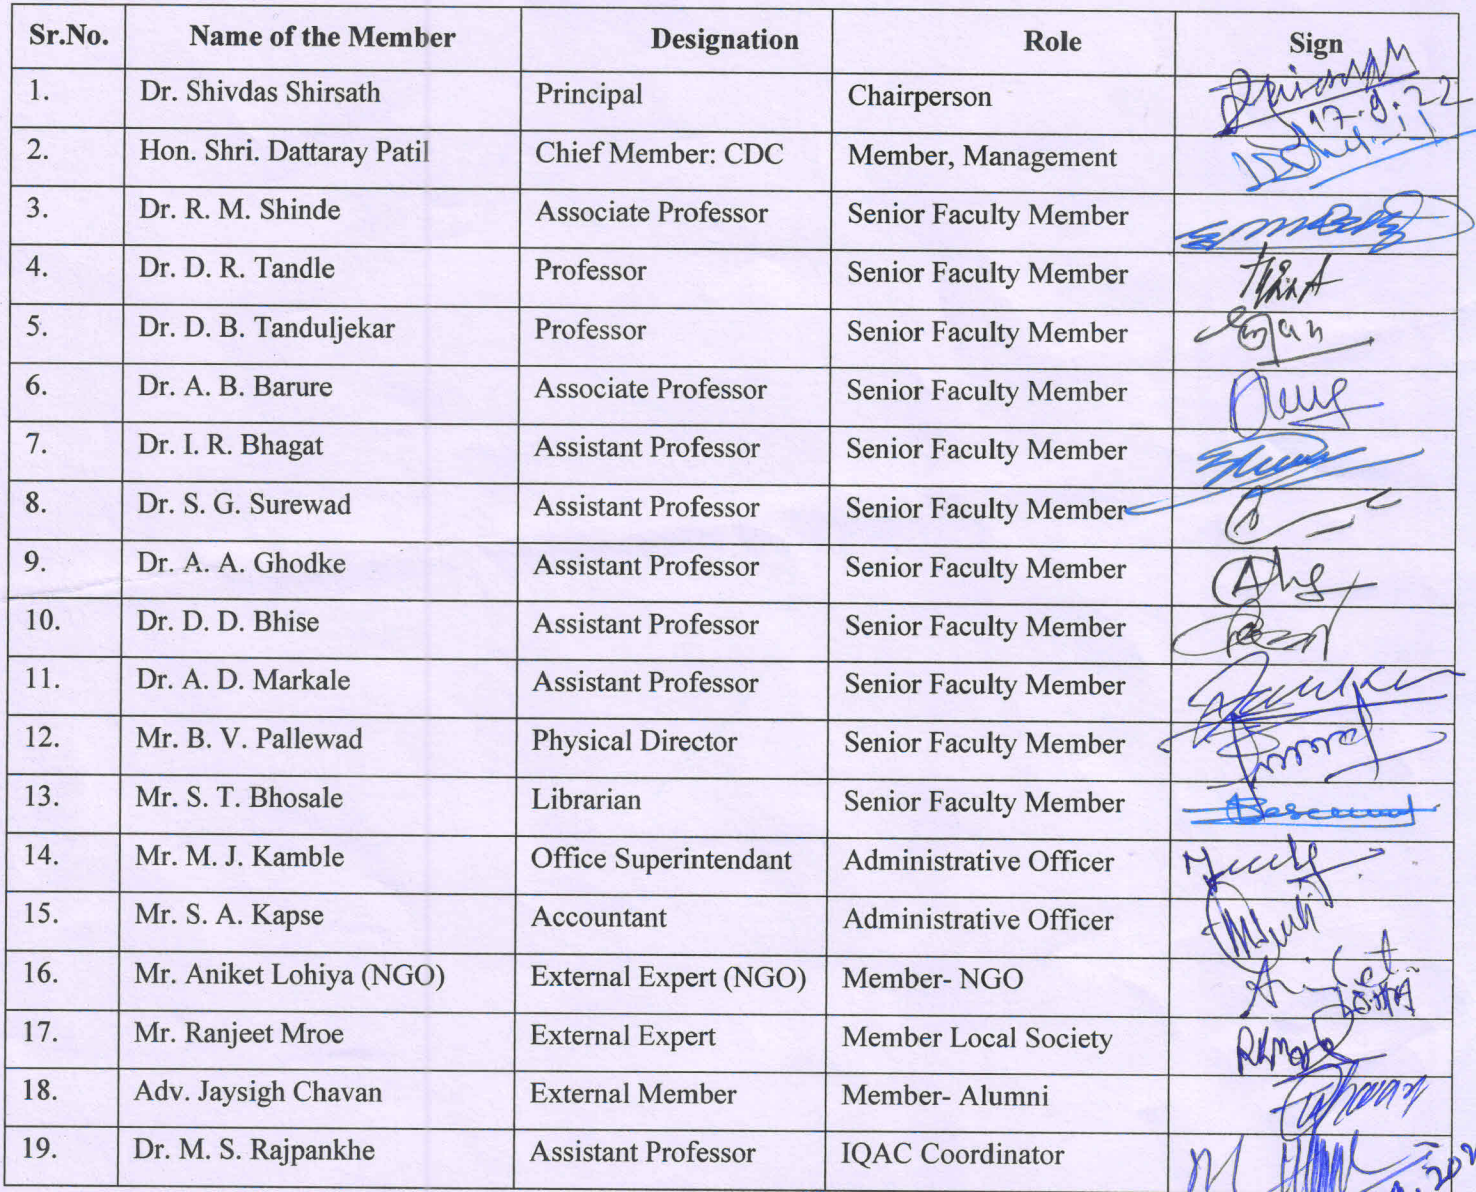 Sr.No. Name of the Member Designation Role Sign
1. Dr. Shivdas Shirsath Principal Chairperson
17.9.22
2. Hon. Shri. Dattaray Patil Chief Member: CDC Member, Management
3. Dr. R. M. Shinde Associate Professor Senior Faculty Member
4. Dr. D. R. Tandle Professor Senior Faculty Member
5. Dr. D. B. Tanduljekar Professor Senior Faculty Member
6. Dr. A. B. Barure Associate Professor Senior Faculty Member
7. Dr. I. R. Bhagat Assistant Professor Senior Faculty Member
8. Dr. S. G. Surewad Assistant Professor Senior Faculty Member
9. Dr. A. A. Ghodke Assistant Professor Senior Faculty Member
10. Dr. D. D. Bhise Assistant Professor Senior Faculty Member
11. Dr. A. D. Markale Assistant Professor Senior Faculty Member
12. Mr. B. V. Pallewad Physical Director Senior Faculty Member
13. Mr. S. T. Bhosale Librarian Senior Faculty Member
14. Mr. M. J. Kamble Office Superintendant Administrative Officer
15. Mr. S. A. Kapse Accountant Administrative Officer
16. Mr. Aniket Lohiya (NGO) External Expert (NGO) Member- NGO Aniket
17. Mr. Ranjeet Mroe External Expert Member Local Society
18. Adv. Jaysigh Chavan External Member Member- Alumni
19. Dr. M. S. Rajpankhe Assistant Professor IQAC Coordinator